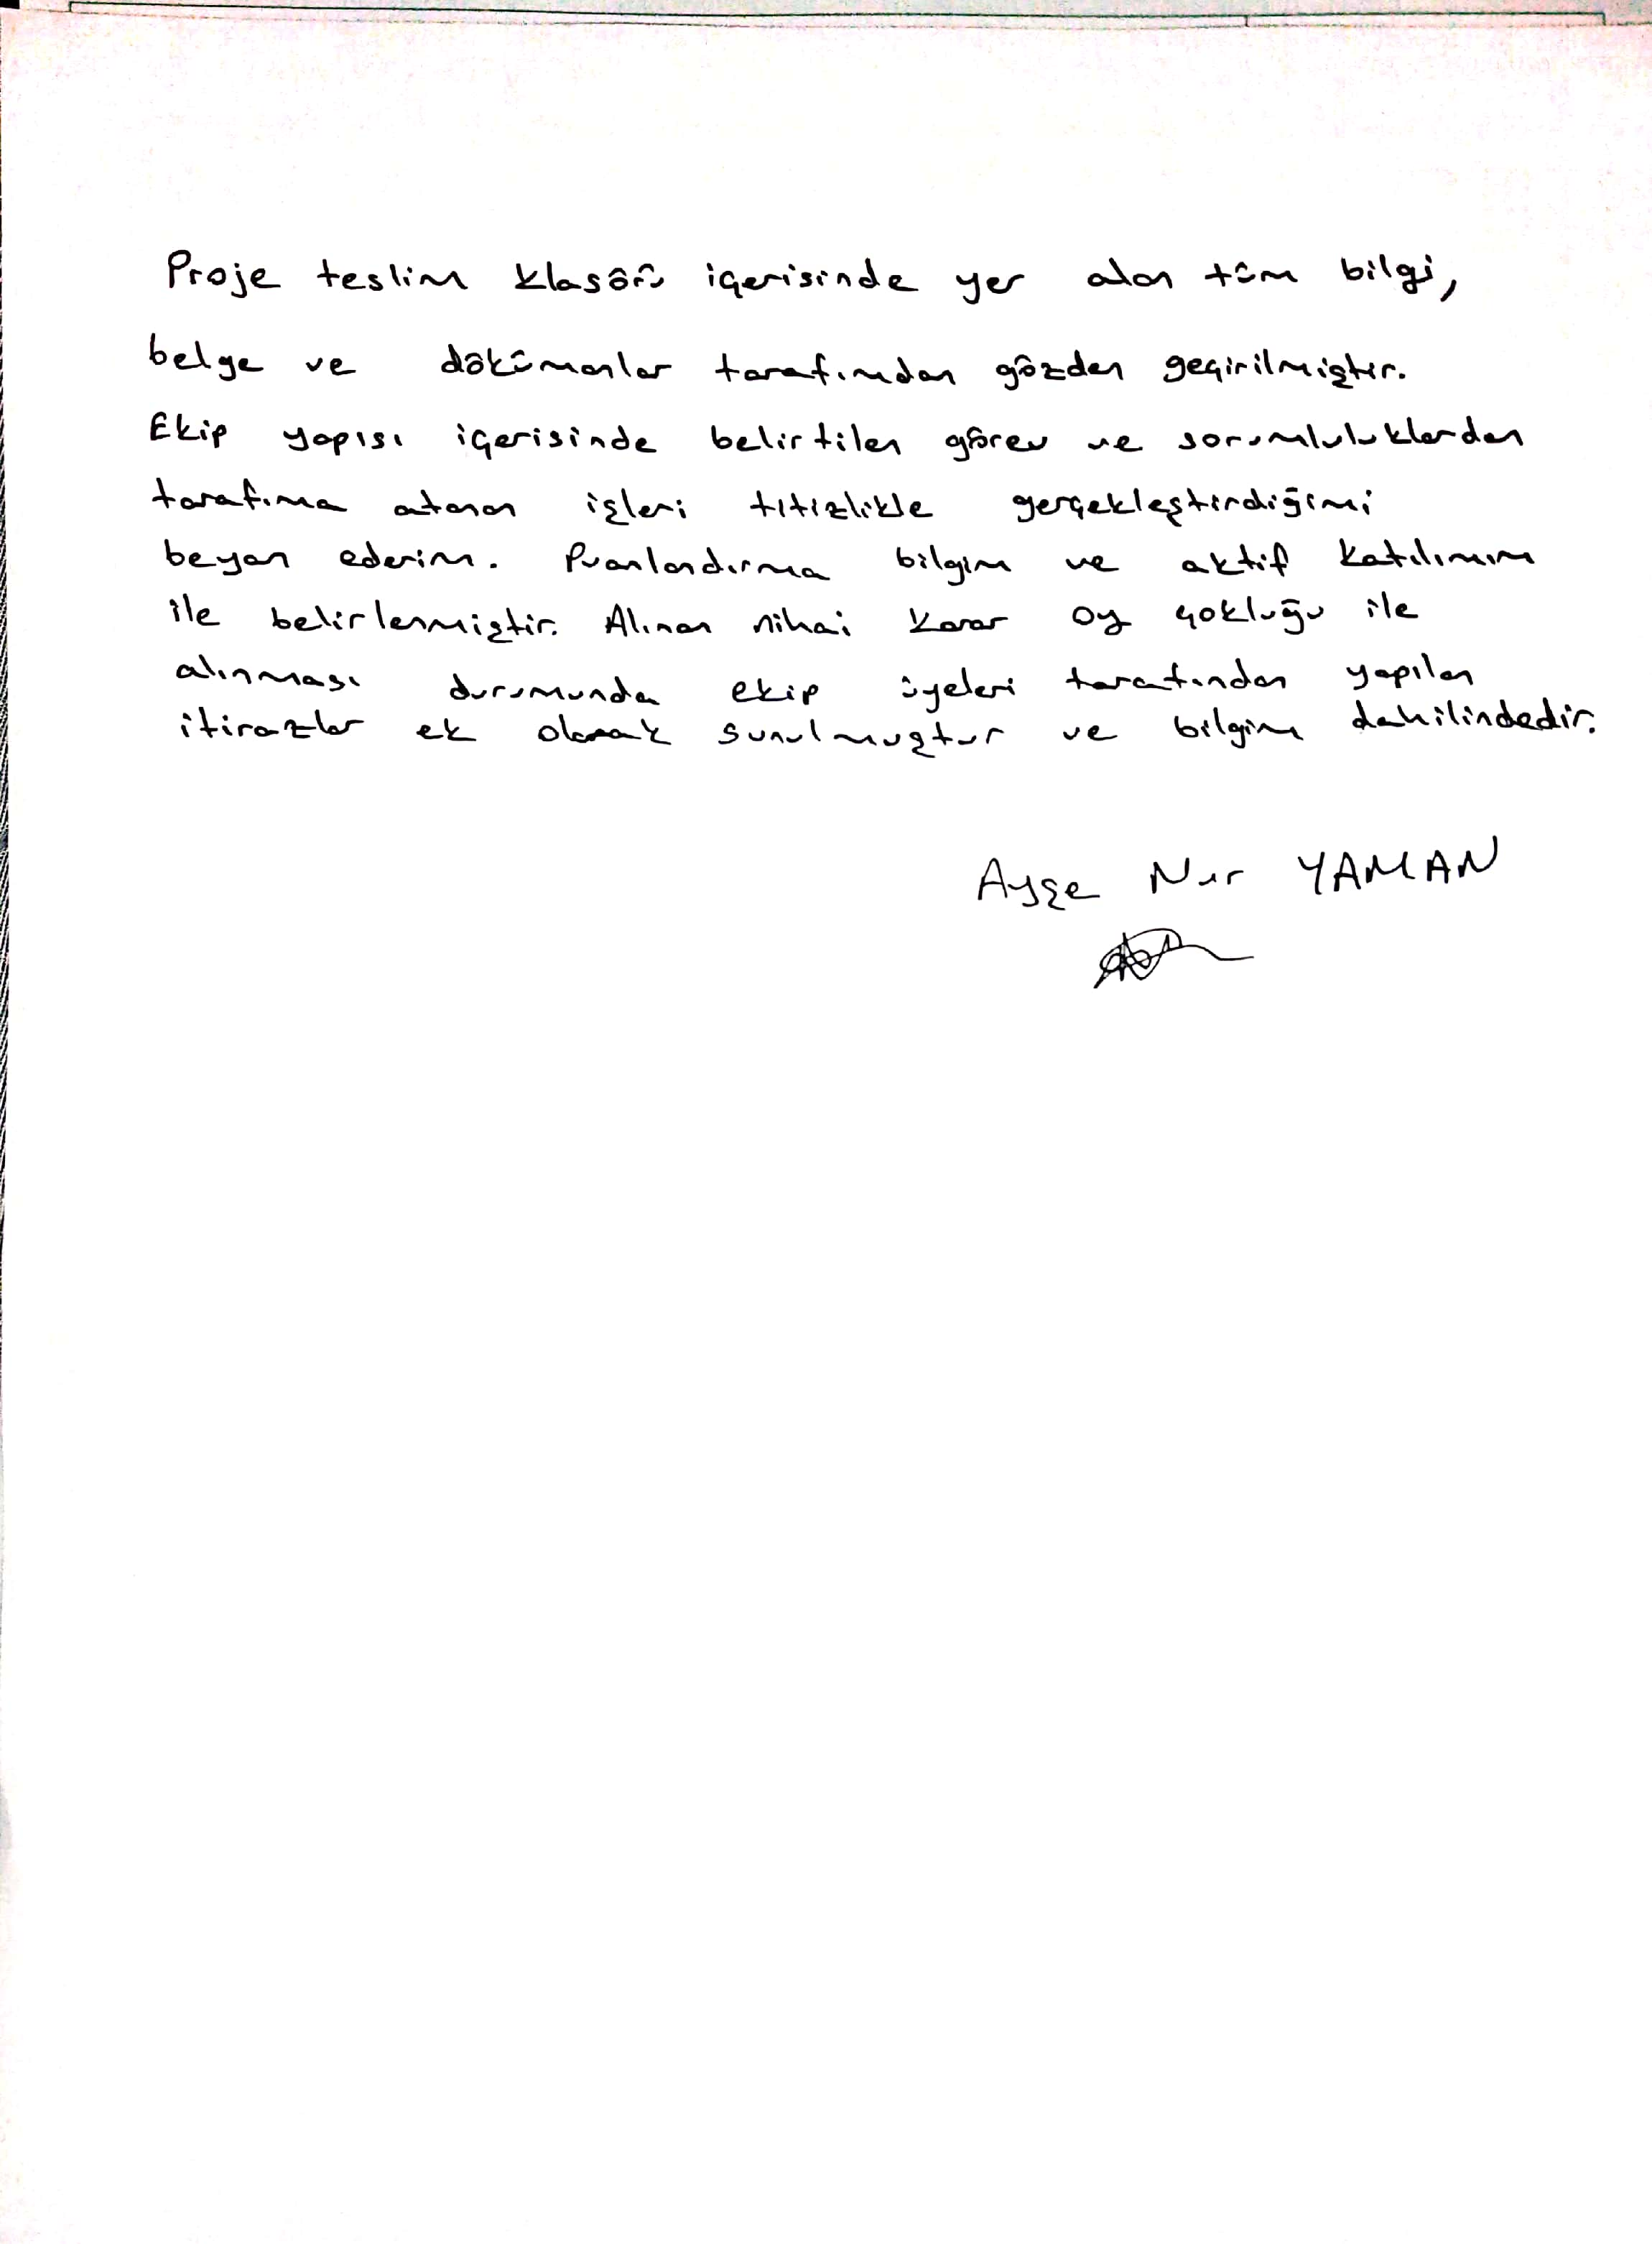 Proje teslim klasörü içerisinde yer alan tüm bilgi,
belge ve dökümanlar tarafımdan gözden geçirilmiştir.
Ekip yapısı içerisinde belirtilen görev ve sorumluluklardan
tarafıma atanan işleri titizlikle gerçekleştirdiğimi
beyan ederim. Puanlandırma bilgim ve aktif katılımım
ile belirlenmiştir. Alınan nihai karar oy çokluğu ile
alınması durumunda ekip üyeleri tarafından yapılan
itirazlar ek olarak sunulmuştur ve bilgim dahilindedir.
Ayşe Nur YAMAN